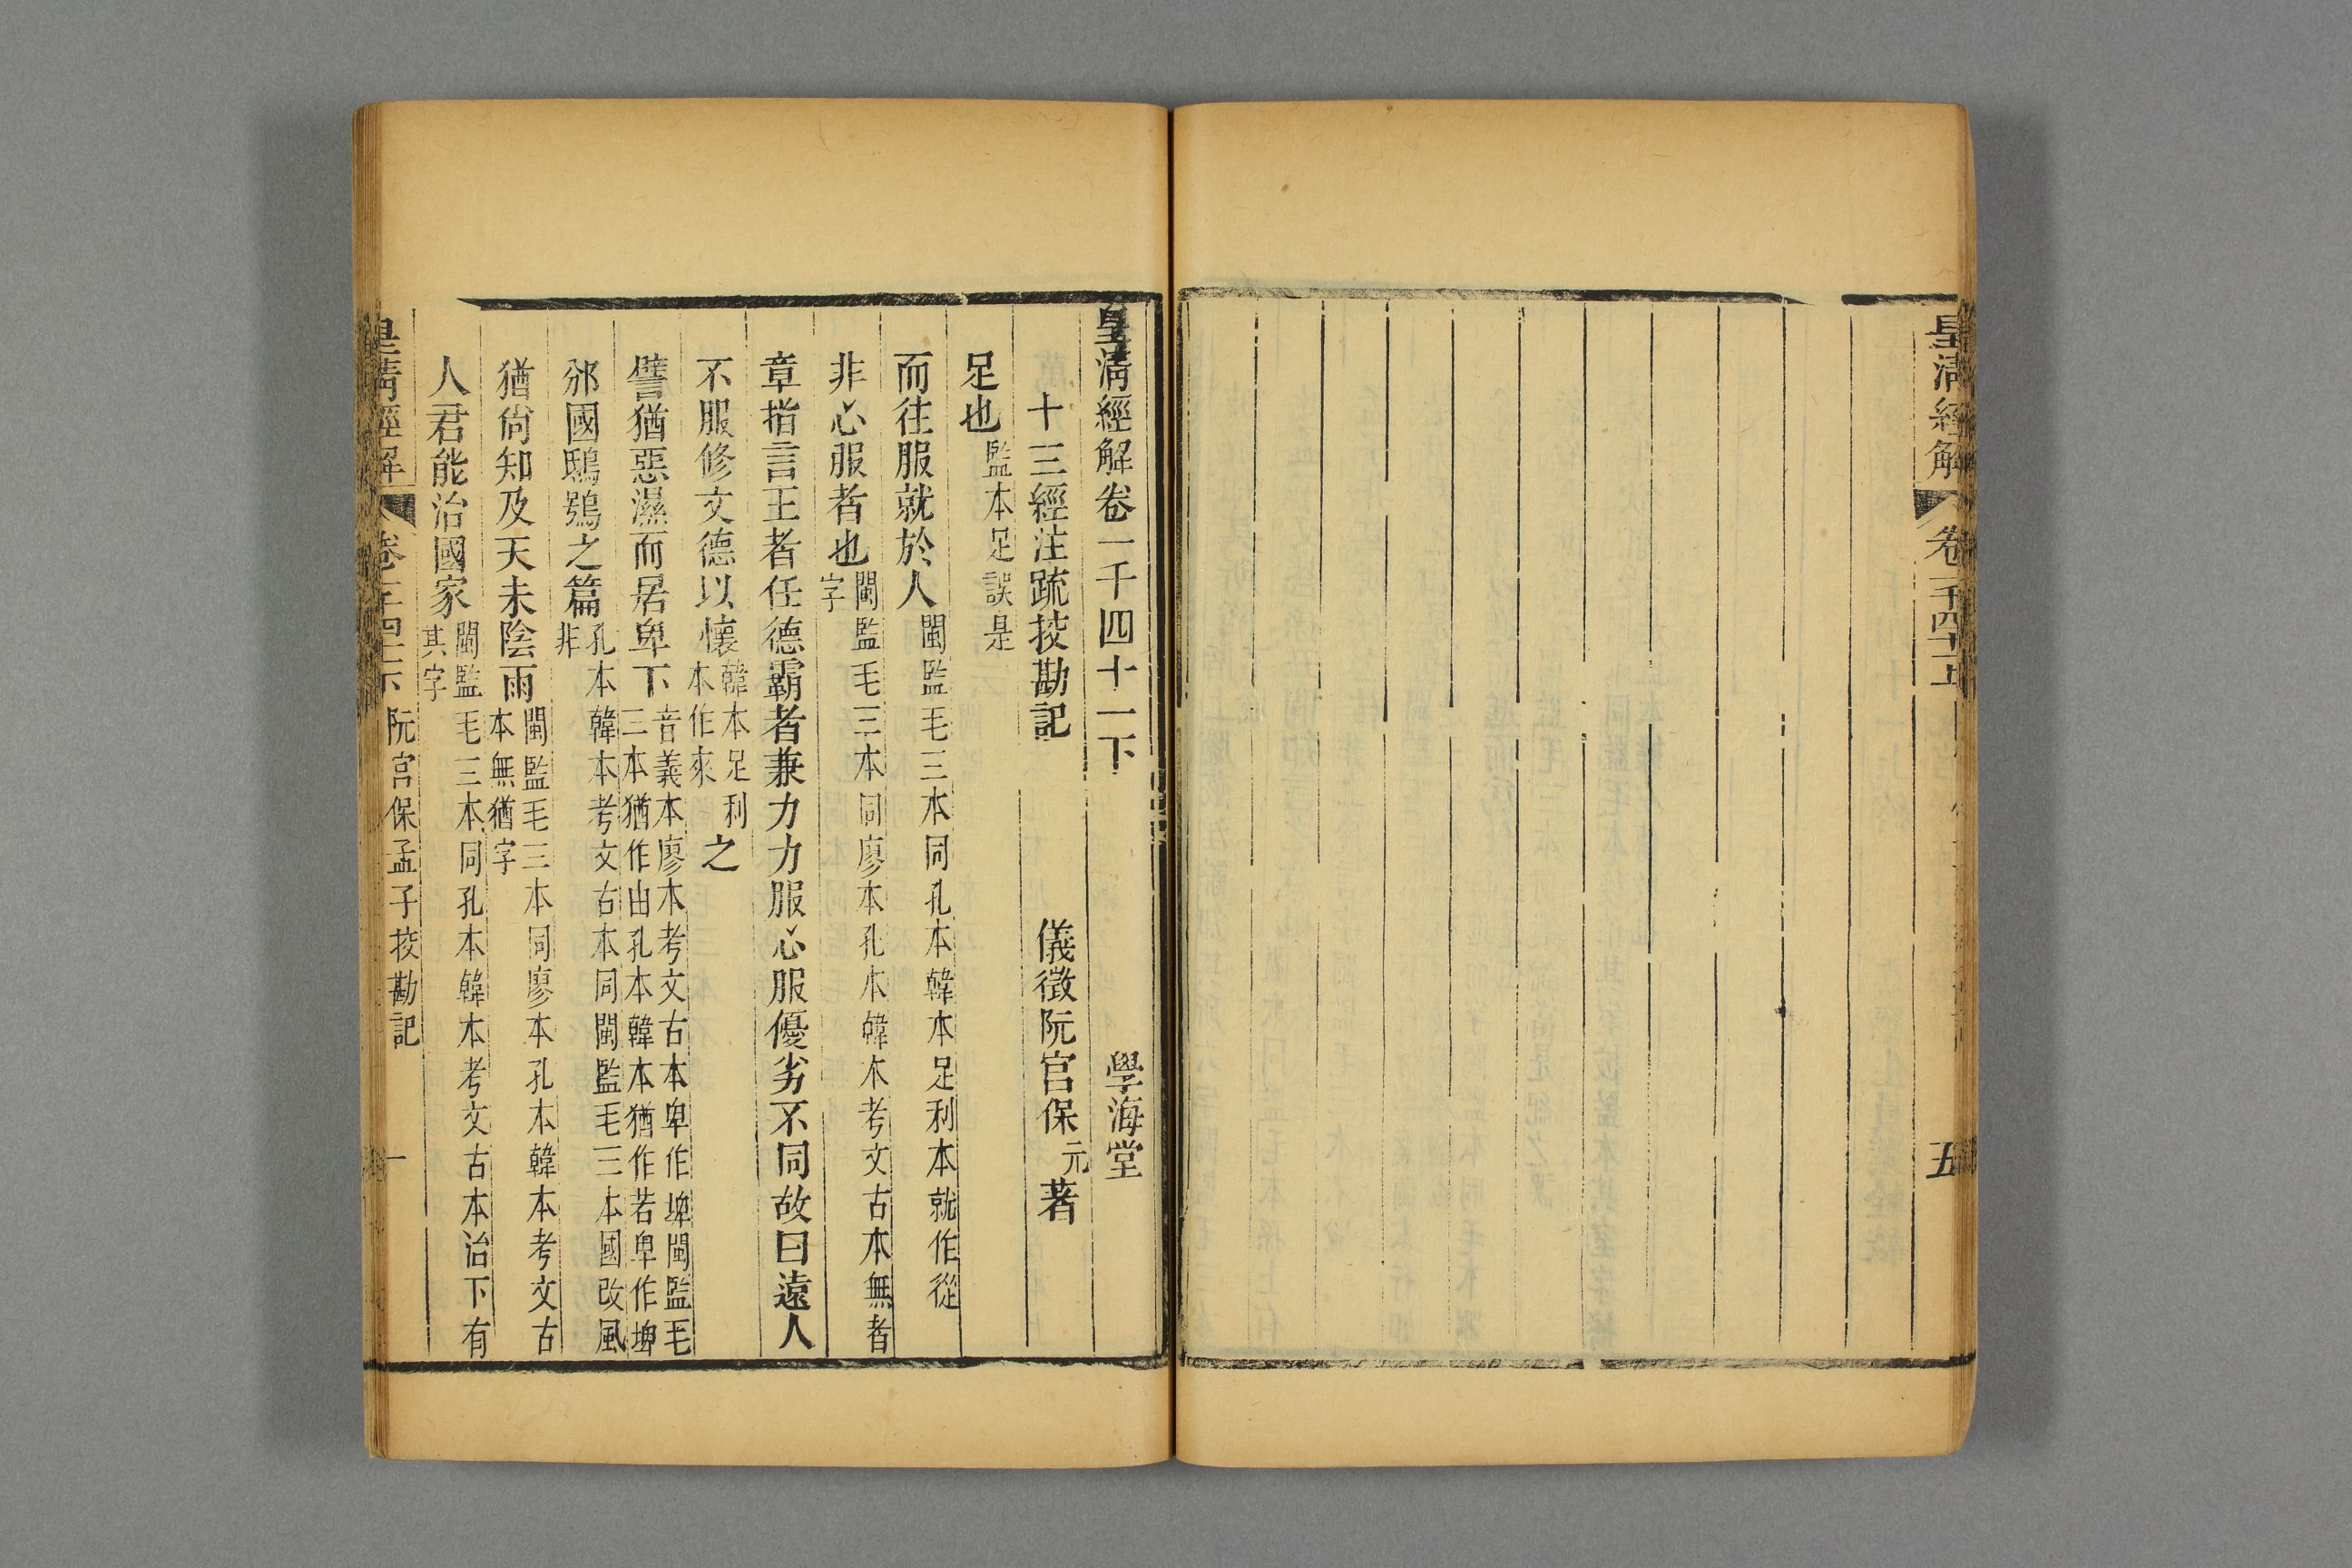 皇清經解 卷一千四十一上 五
皇清經解卷一千四十一下 學海堂
十三經注疏挍勘記 儀徵阮宮保元著
足也監本足誤是
而往服就於人閩監毛三本同孔本韓本足利本就作從
非心服者也閩監毛三本同廖本孔本韓本考文古本無者字
章指言王者任德霸者兼力力服心服優劣不同故曰遠人
不服修文德以懷韓本足利本作來之
譬猶惡濕而居卑下音義本廖本考文古本卑作埤閩監毛三本猶作由孔本韓本猶作若卑作埤
邠國鴟鴞之篇孔本韓本考文古本同閩監毛三本國改風非
猶尙知及天未陰雨閩監毛三本同廖本孔本韓本考文古本無猶字
人君能治國家閩監毛三本同孔本韓本考文古本治下有其字
皇清經解 卷一千四十一下 阮宮保孟子挍勘記 一